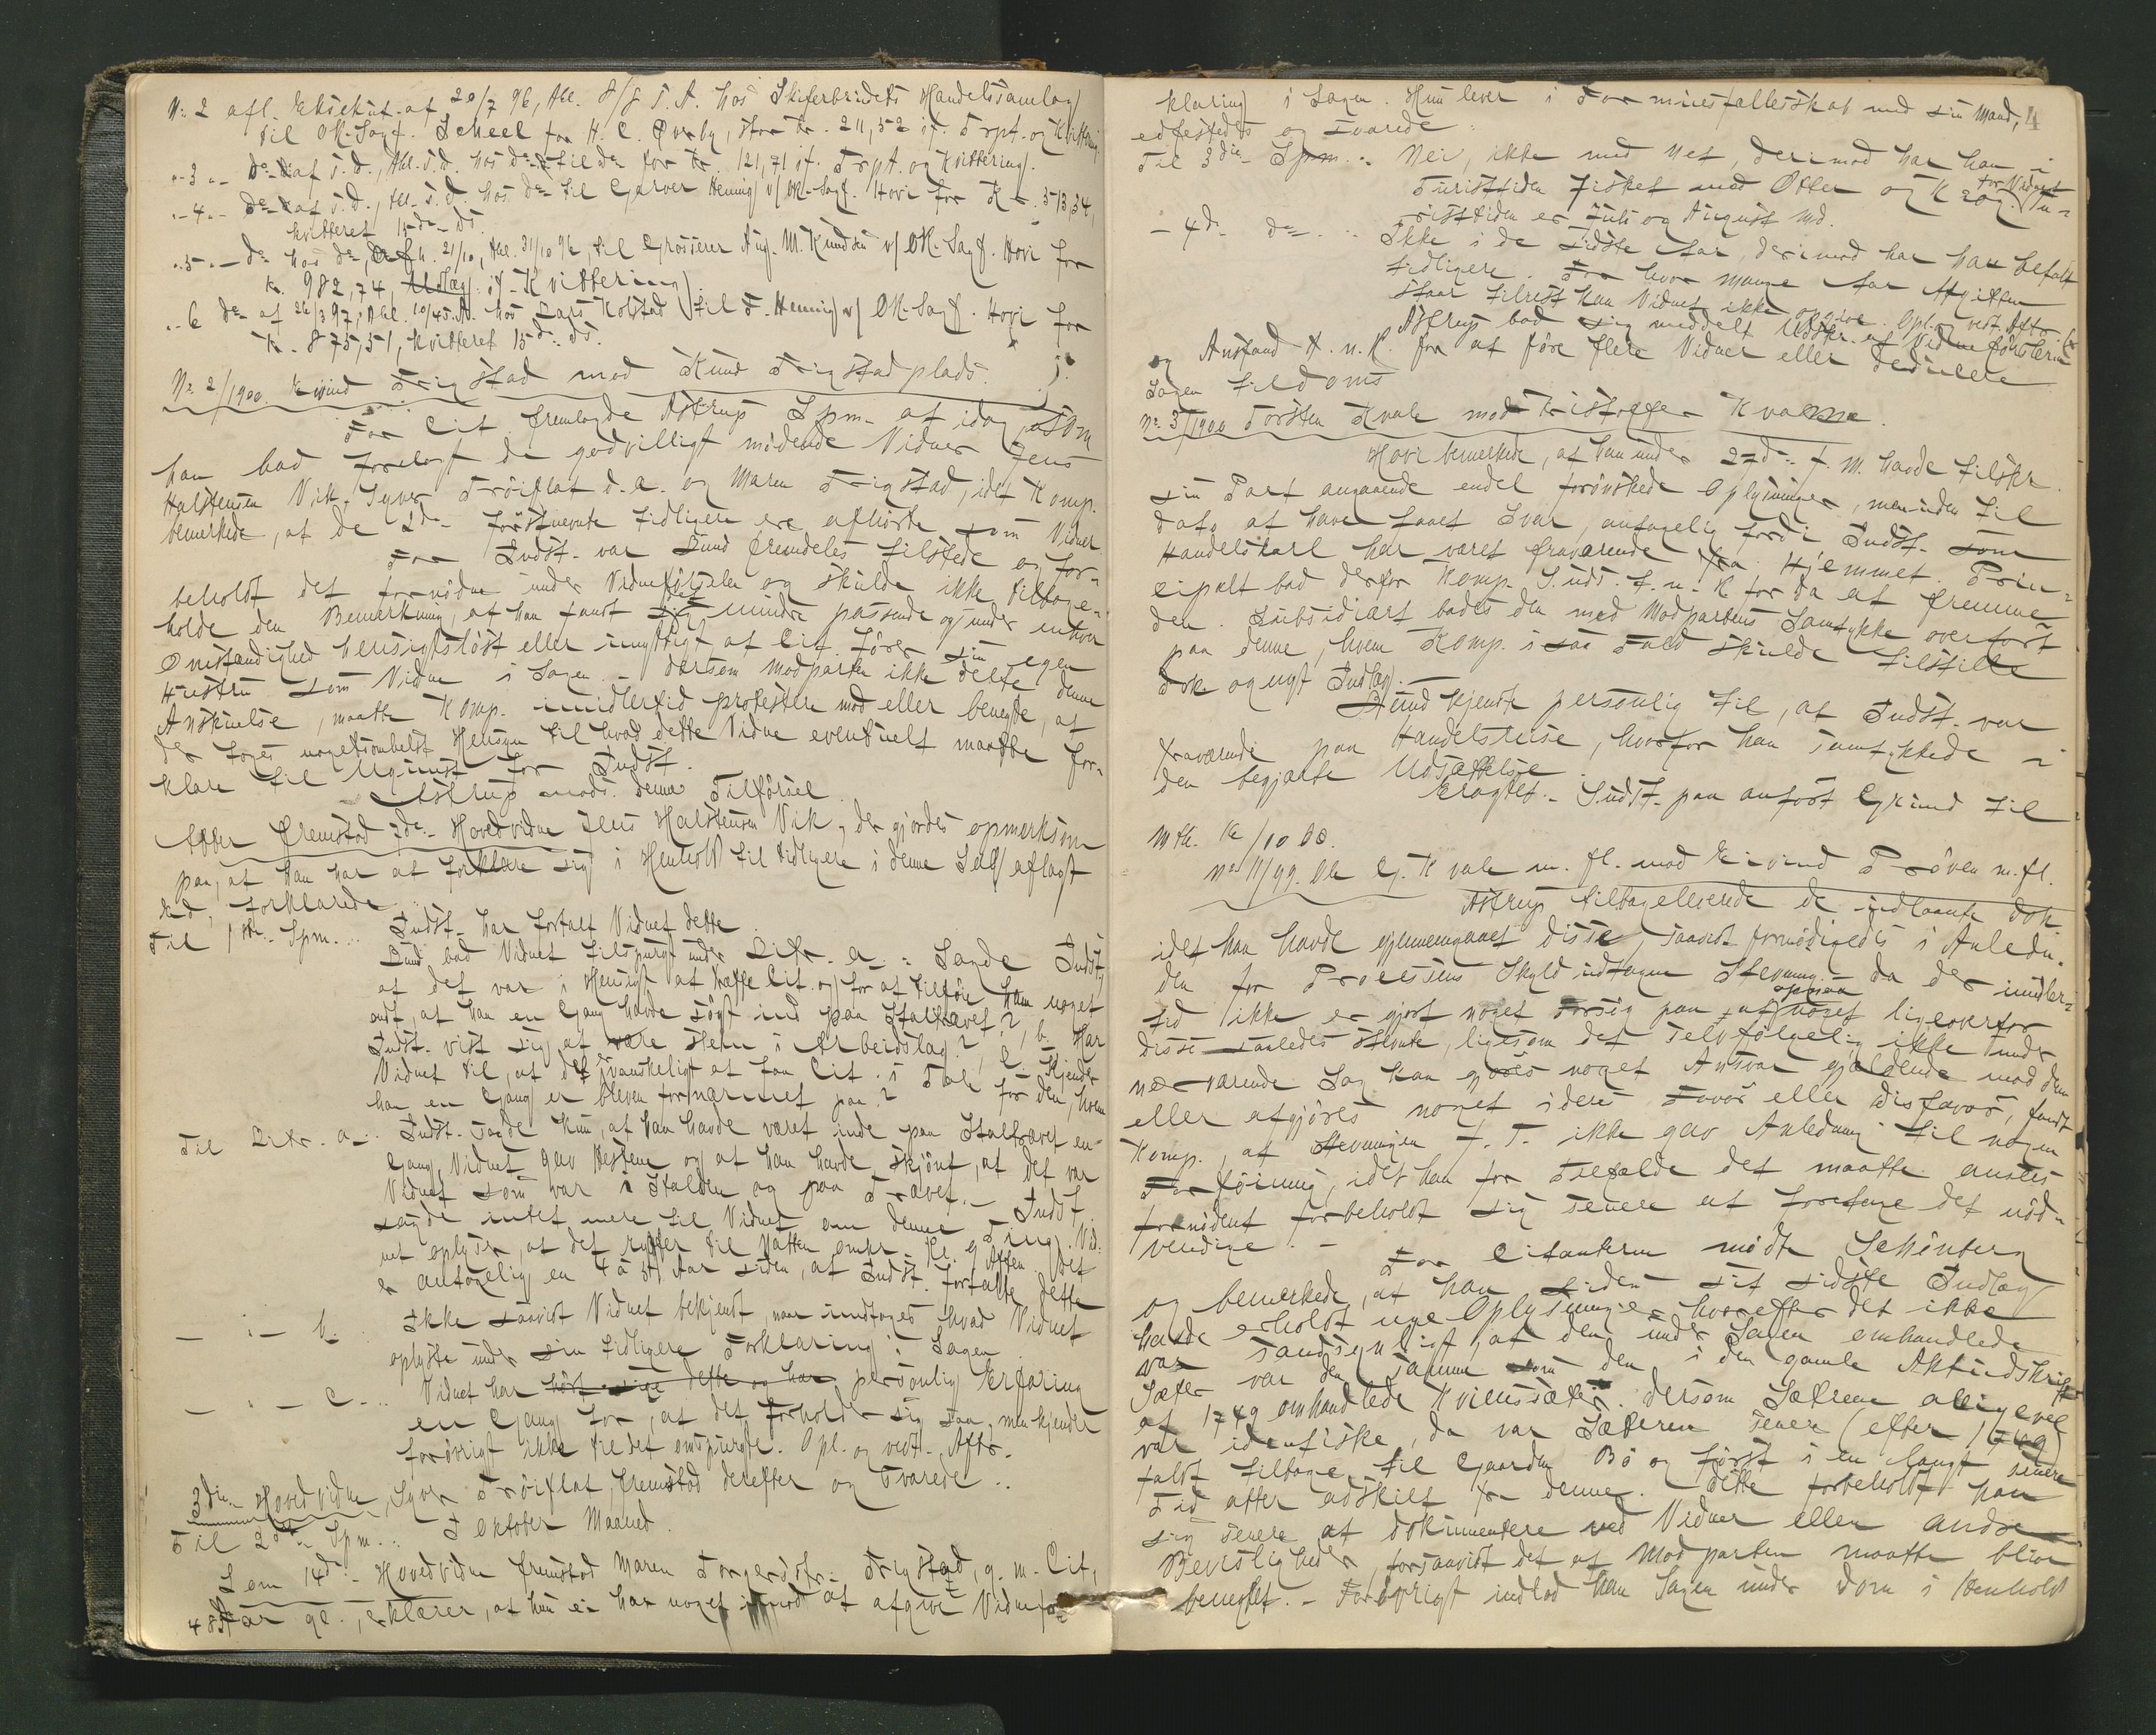 N: 2 afl. Eksekut. af 20/7 96, Abl. 8/8 s. A. hos Skiferbrudets Handelssamlag
til OR-Sagf. Scheel for H. C. Øverby, stor Kr. 211,52 if. Drpt. og Kvittering.
"- 3 "- Do- af s. d., Abl. s. d. hos do- til do- for Kr. 121,71 if. Drpt. og Kvittering.
"- 4 "- Do- af s. d., Abl. s. d. hos do- til Garver Hennig v/ OR-Sagf. Hovi for Kr. 573,34,
kvitteret 15de ds.
"- 5 "- do- hos do, 21/10, Abl. 31/10 96, til Grosserer Aug. M. Knudsen v/ OR-Sagf. Hovi for
Kr. 982,74, Udlæg if. Kvittering.
"- 6 do- af 26/3 97, Abl. 10/4 s. A. hos Lars Kolstad til S. Hennig v/ OR-Sagf. Hovi for
Kr. 875,51, kvitteret 15de ds.
No 2/1900. Eivind Trigstad mod Knud Trigstadplads.
For Cit. fremlagde Astrup Spm. af idag, som
han bad forelagt de godvilligt mødende Vidner Jens
Halstensen Vik, Syver Trøiflat d. a. og Maren Trigstad, idet Komp.
bemerkede, at de 2de førstnevnte tidligere ere afhørte som Vidner.
For Indst. var Lund fremdeles tilstede og for-
beholdt det fornødne under Vidneførselen og skulde ikke tilbage-
holde den Bemerkning, at han fandt det mindre passende og under enhver
Omstændighed hensigtsløst eller unyttigt at Cit. fører sin egen
Hustru som Vidne i Sagen. - Dersom Modparten ikke delte denne
Anskuelse, maatte Komp. imidlertid protestere mod eller benegte, at
der toges nogetsomhelst Hensyn til hvad dette Vidne eventuelt maatte for-
klare til Ugunst for Indst.
Astrup mods. denne Tilførsel.
Efter fremstod 2de Hovedvidne Jens Halstensen Vik, der gjordes opmerksom
paa, at han har at forklare sig i Henhold til tidligere i denne Sag aflagt
Ed, forklarede
Til 1ste Spm... Indst. har fortalt Vidnet dette.
Lund bad Vidnet tilspurgt under Litr. a.: Sagde Indst,
at det var i Hensigt at træffe Cit. og for at tilføie ham noget
ondt, at han en Gang havde søgt ind paa Staltrævet?, b. Har
Indst. vist sig at være slem i Arbeidslag?, c. Kjender
Vidnet til, at det er vanskeligt at faa Cit. i Tale for den, hvem
han en Gang er bleven fornærmet paa?
Til Litr. a... Indst. sagde kun, at han havde været inde paa Staltrævet en
Gang, Vidnet gav Hestene og at han havde skjønt, at det var
Vidnet som var i Stalden og paa Trævet. - Indst.
sagde intet mere til Vidnet om denne Ting. Vid-
net oplyser, at det sigter til Natten omkr. Kl. 9 Aften. Det
er antagelig en 4 à 5 Aar siden, at Indst. fortalte dette
- : - b... Ikke saavidt Vidnet bekjendt, naar undtages hvad Vidnet
oplyste under sin tidligere Forklaring i Sagen.
- : - c... Vidnet har hørt sige dette og har personlig Erfaring
en Gang for, at det forholder sig saa, men kjender
forøvrigt ikke til det omspurgte. Opl. og vedt. Aftr.
3die Hovedvidne, Syver Trøiflat, fremstod derefter og svarede..
Til 2det Spm... I Oktober Maaned.
Som 14de Hovedvidne fremstod Maren Torgersdtr. Trigstad, g. m. Cit,
48 Aar gl., erklærer, at hun ei har noget imod at afgive Vidnefor-
4
klaring i Sagen. Hun lever i Formuesfællesskab med sin Mand,
edfestedes og svarede:
Til 3die Spm... Nei, ikke med Net, derimod har han i
Turisttiden fisket med Otter og Krog for Vidnet. Tu-
risttiden er Juli og August Md.
- 4de do... Ikke i de sidste Aar, derimod har han befalt
tidligere. For hvor mange Aar Afgiften
staar tilrest kan Vidnet ikke opgive. Opl. og vedt. Aftr.
Astrup bad sig meddelt Udskr. af Vidneførslerne
og Anstand t. n. R. for at føre flere Vidner eller deducere
Sagen tildoms
No 3/1900 Torsten Kvale mod Kristoffer Kvame.
Hovi bemerkede, at han under 27de f. M. havde tilskr.
sin Part angaaende endel forønskede Oplysninger, men inden til
dato at have faaet Svar, antagelig fordi Indst. som
Handelskarl har været fraværende fra Hjemmet. Prin-
cipalt bad derfor Komp. S. uds. t. n. R. for da at fremme
den. Subsidiært bades den med Modpartens Samtykke overført
paa denne, hvem Komp. i saa Fald skulde tilstille
Dok og nyt Indlæg.
Lund kjendte personlig til, at Indst. var
fraværende paa Handelsreise, hvorfor han samtykkede i
den begjærte Udsættelse.
Eragtet. - S. udst. paa anført Grund til
Mth. 16/10 00.
No 11/99. Ole G. Kvale m. fl. mod Eivind Prøven m. fl.
Astrup tilbageleverede de indlaante Dok.
idet han havde gjennemgaaet disse, saavidt fornødigedes i Anledn.
den for Processens Skyld indtagne Stevning. Da der imidler-
tid ikke er gjort noget Forsøg paa at opnaa noget ligeoverfor
disse saaledes stevnte, ligesom det selvfølgelig ikke under
nærværende Sag kan gøres noget Ansvar gjældende mod dem
eller afgjøres noget ideres Favør eller Disfavør, fandt
Komp., at Stevningen f. T. ikke gav Anledning til nogen
Forføining, idet han for Tilfælde det maatte ansees
fornødent forbeholdt sig senere at foretage det nød-
vendige. -
For Citanterne mødte Schönberg
og bemerkede, at han siden sit sidste Indlæg
havde erholdt nye Oplysninger hvorefter det ikke
var sandsynligt, at den under Sagen omhandlede
Sæter var den samme som den i den gamle Aktudskrift
af 1749 omhandlede Kvilessæter. Dersom Sætrene alligevel
var identiske, da var Sæteren senere (efter 1749)
faldt tilbage til Gaarden Bø og først i en langt senere
Tid atter adskilt fra denne. Dette forbeholdt han
sig senere at dokumentere ved Vidner eller andre
Bevisligheder, forsaavidt det af Modparten maatte blive
benegtet. - Forøvrigt indlod han Sagen under Dom i Henhold